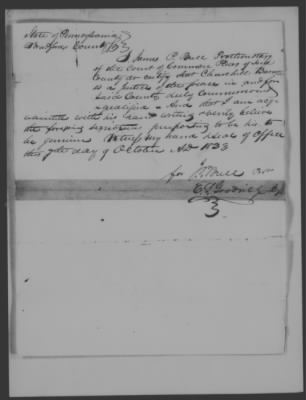 State of Pennsylvania
Bradford County SS
I James P. Bull Prothonotary
of the Court of Common Pleas of said
County do certify that Churchill
is a Justice of the peace in and for
said County duly Commissioned
&qualified - And that I am acq
uainted with his hand writing & verily believe
the foregoing signature purporting to be his to
be genuine Witness my hand & seal of Office
this day of October AD 1833
for J P Bull